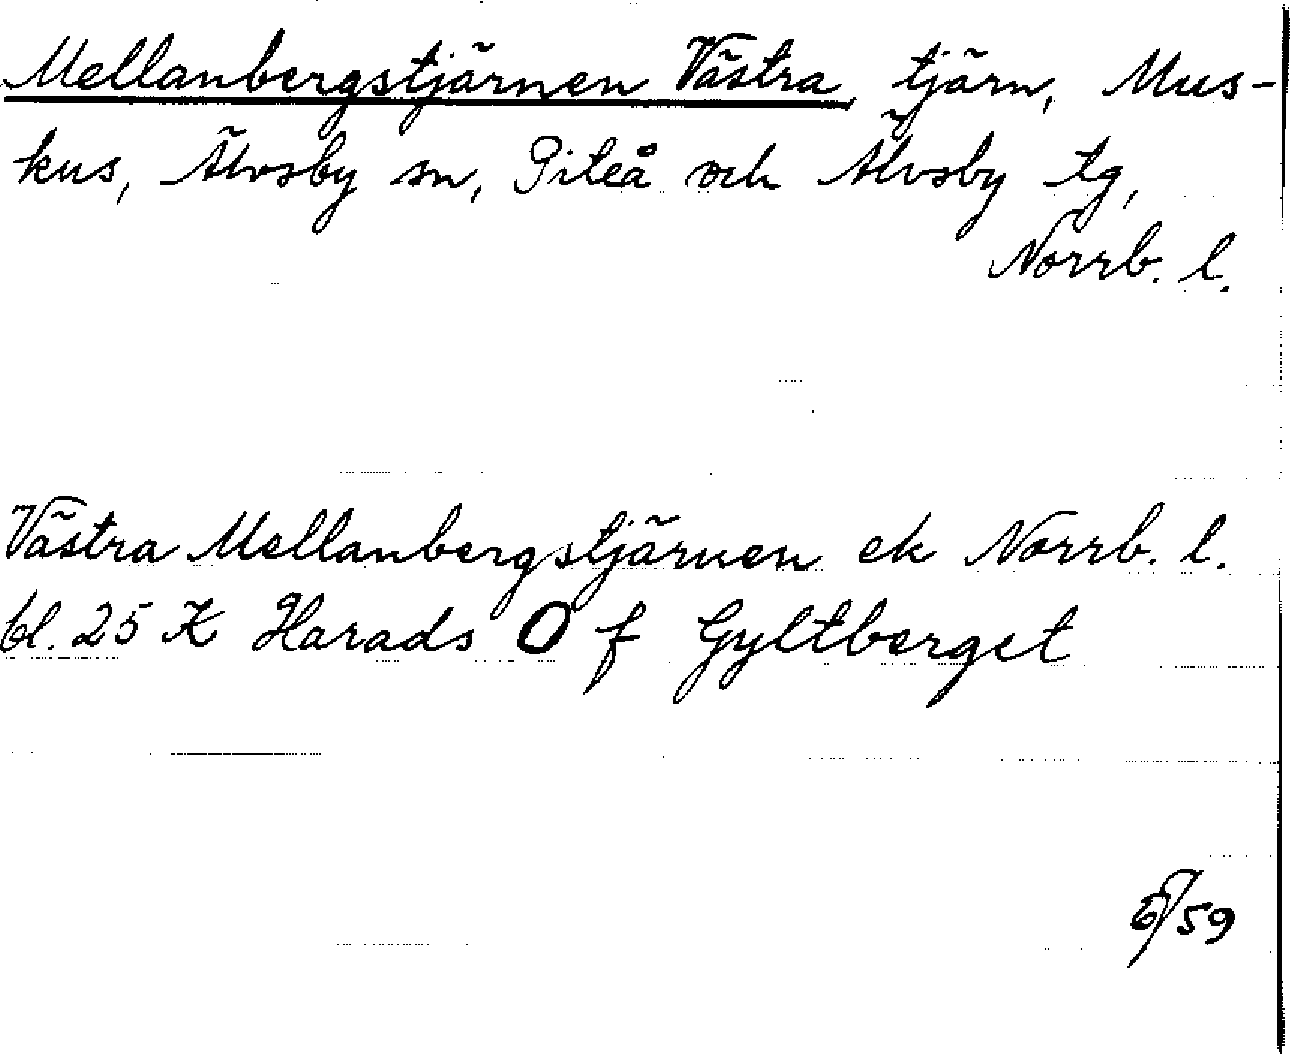 Mellanbergstjärnen Västra, tjärn, Mus-
kus, Älvsby sn, Piteå och Älvsby tg,
Norrb. l.
Västra Mellanbergstjärnen ek Norrb. l.
bl. 25 K Harads O f Gyltberget
6/59